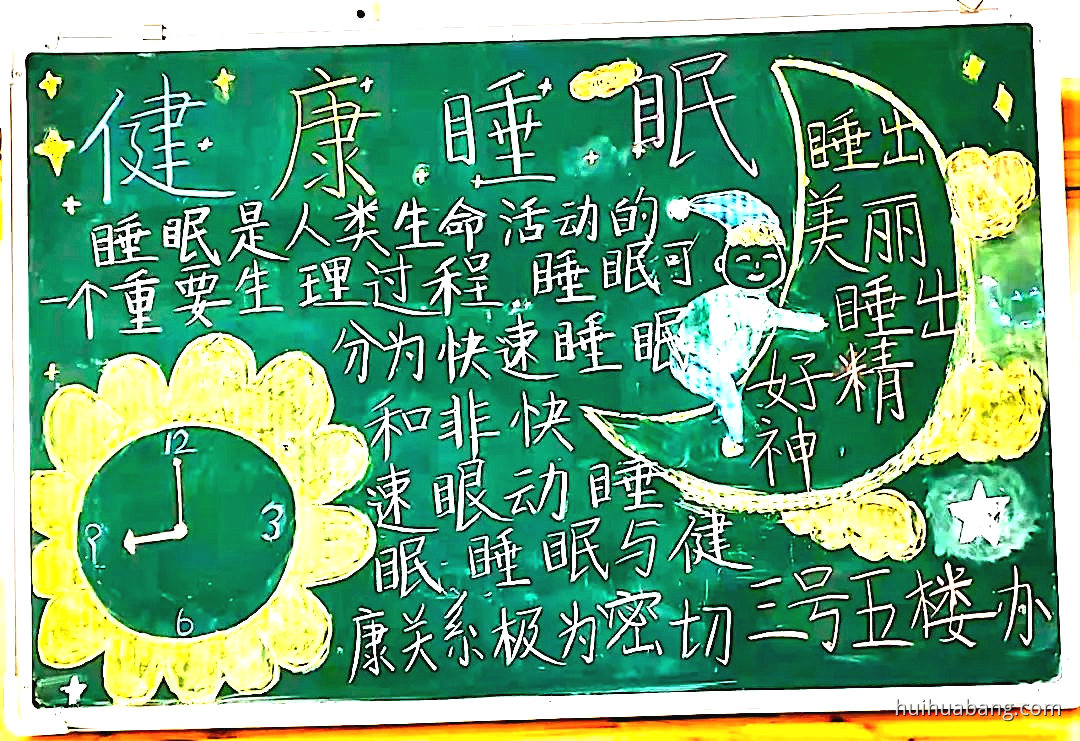 健康睡眠
睡眠是人类生命活动的
一个重要生理过程 睡眠可
分为快速睡眠
和非快
速眼动睡
眠 睡眠与健
康关系极为密切
睡出
美丽
睡出
好精
神
12
3
6
9
三号五楼办
huihuabang.com